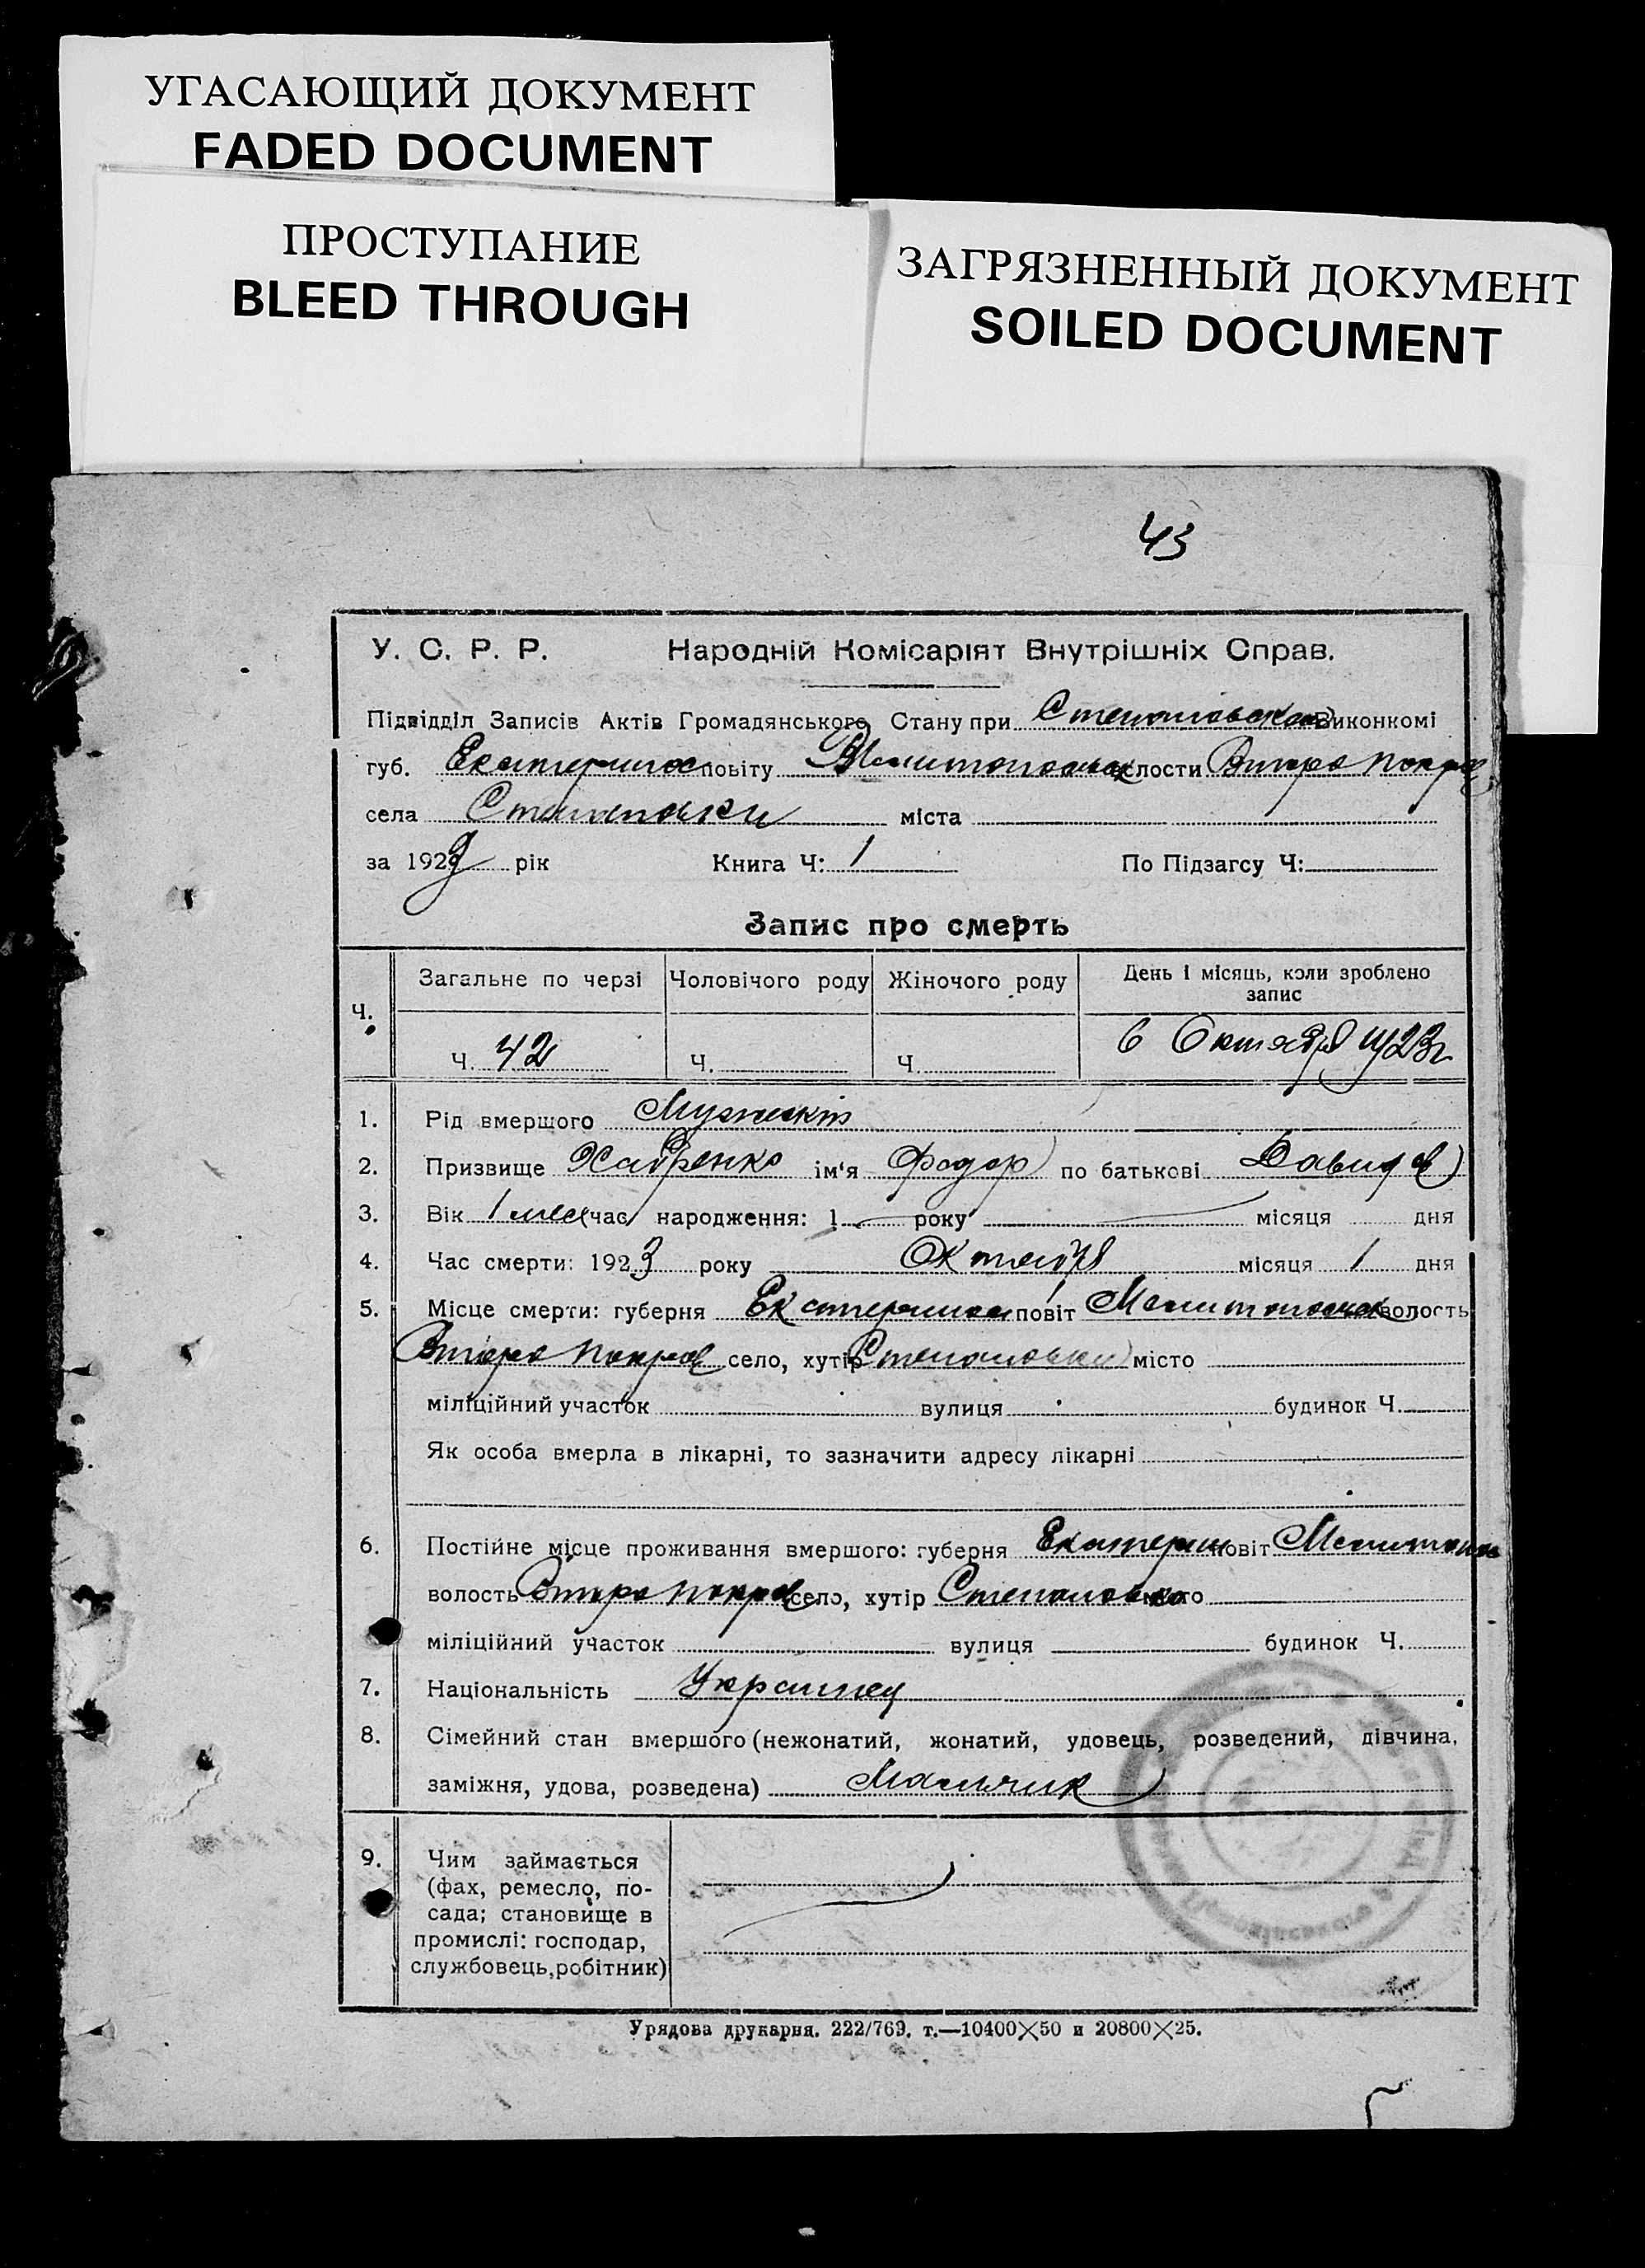 УГАСАЮЩИЙ ДОКУМЕНТ
FADED DOCUMENT
ПРОСТУПАНИЕ
BLEED THROUGH
ЗАГРЯЗНЕННЫЙ ДОКУМЕНТ
SOILED DOCUMENT
43
У. С. Р. Р. Народній Комісаріят Внутрішніх Справ.
Підвідділ Записів Актів Громадянського Стану при Степановском Виконкомі
губ. Екатеринос повіту Мелитопольск лости Второ Покров
села Степановки міста
за 192 рік Книга Ч: 1 По Підзагсу Ч:
Запис про смерть
Ч. Загальне по черзі Чоловічого роду Жіночого роду День і місяць, коли зроблено запис
Ч. 42 Ч. Ч. 6 Октября 1923г
1. Рід вмершого Мужеский
2. Призвище ім'я Федор по батькові Давидов
3. Вік 1 мес час народження: 1 року місяця дня
4. Час смерти: 1923 року Октября місяця 1 дня
5. Місце смерти: губерня Екатеринос повіт Мелитопольск волость
Второ Покров село, хутір Степановки місто
міліційний участок вулиця будинок Ч.
Як особа вмерла в лікарні, то зазначити адресу лікарні
6. Постійне місце проживання вмершого: губерня Екатерин повіт Мелитопол
волость Второ Покров село, хутір Степановка місто
міліційний участок вулиця будинок Ч.
7. Національність Украинец
8. Сімейний стан вмершого (нежонатий, жонатий, удовець, розведений, дівчина,
заміжня, удова, розведена) Мальчик
9. Чим займається
(фах, ремесло, по-
сада; становище в
промислі: господар,
службовець, робітник)
Урядова друкарня. 222/769. т.—10400×50 и 20800×25.